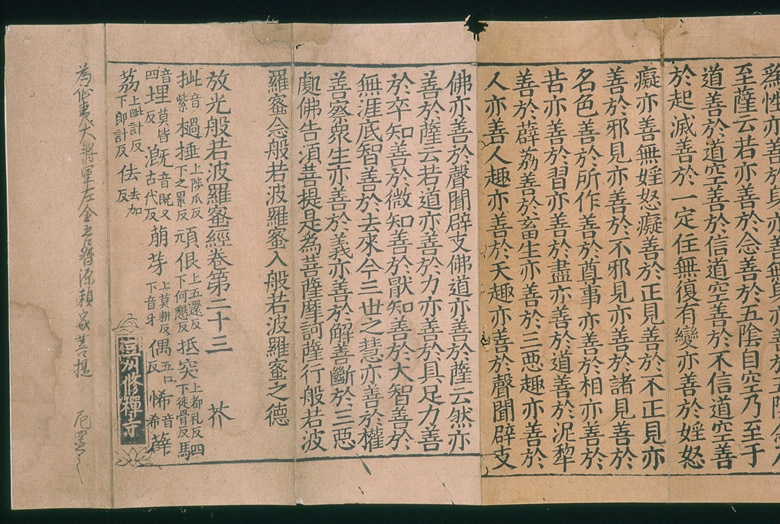 至薩云若亦善於念善於五陰自空乃至于
道善於道空善於信道空善於不信道空善
於起滅善於一定住無復有變亦善於婬怒
癡亦善無婬怒癡善於正見善於不正見亦
善於邪見亦善於不邪見亦善於諸見善於
名色善於所作善於首事亦善於相亦善於
苦亦善於習亦善於盡亦善於道善於泥犁
善於薜荔善於畜生亦善於三惡趣亦善於
人亦善人趣亦善於天趣亦善於聲聞辟支
佛亦善於聲聞辟支佛道亦善於薩云然亦
善於薩云若道亦善於力亦善於具足力善
於卒知善於微知善於厭知善於大智善於
無涯底智善於去來今三世之慧亦善於權
善察衆生亦善於義亦善於解善斷於三惡
劇佛告須菩提是為菩薩摩訶薩行般若波
羅蜜念般若波羅蜜入般若波羅蜜之德
放光般若波羅蜜經卷第二十三 芥
音紫 檛捶上陟瓜反下之累反 頑佷上五還反下何懇反 抵突上都礼反下徒骨反
埋莫皆反 音旣又古代反 萠芽上莫耕反下音牙 偶五口反 悕音希 薜
荔上毗計反下郎計反 佉去加反
豆州修禪寺
為征夷大將軍左金吾督源頼家菩提 尼置之